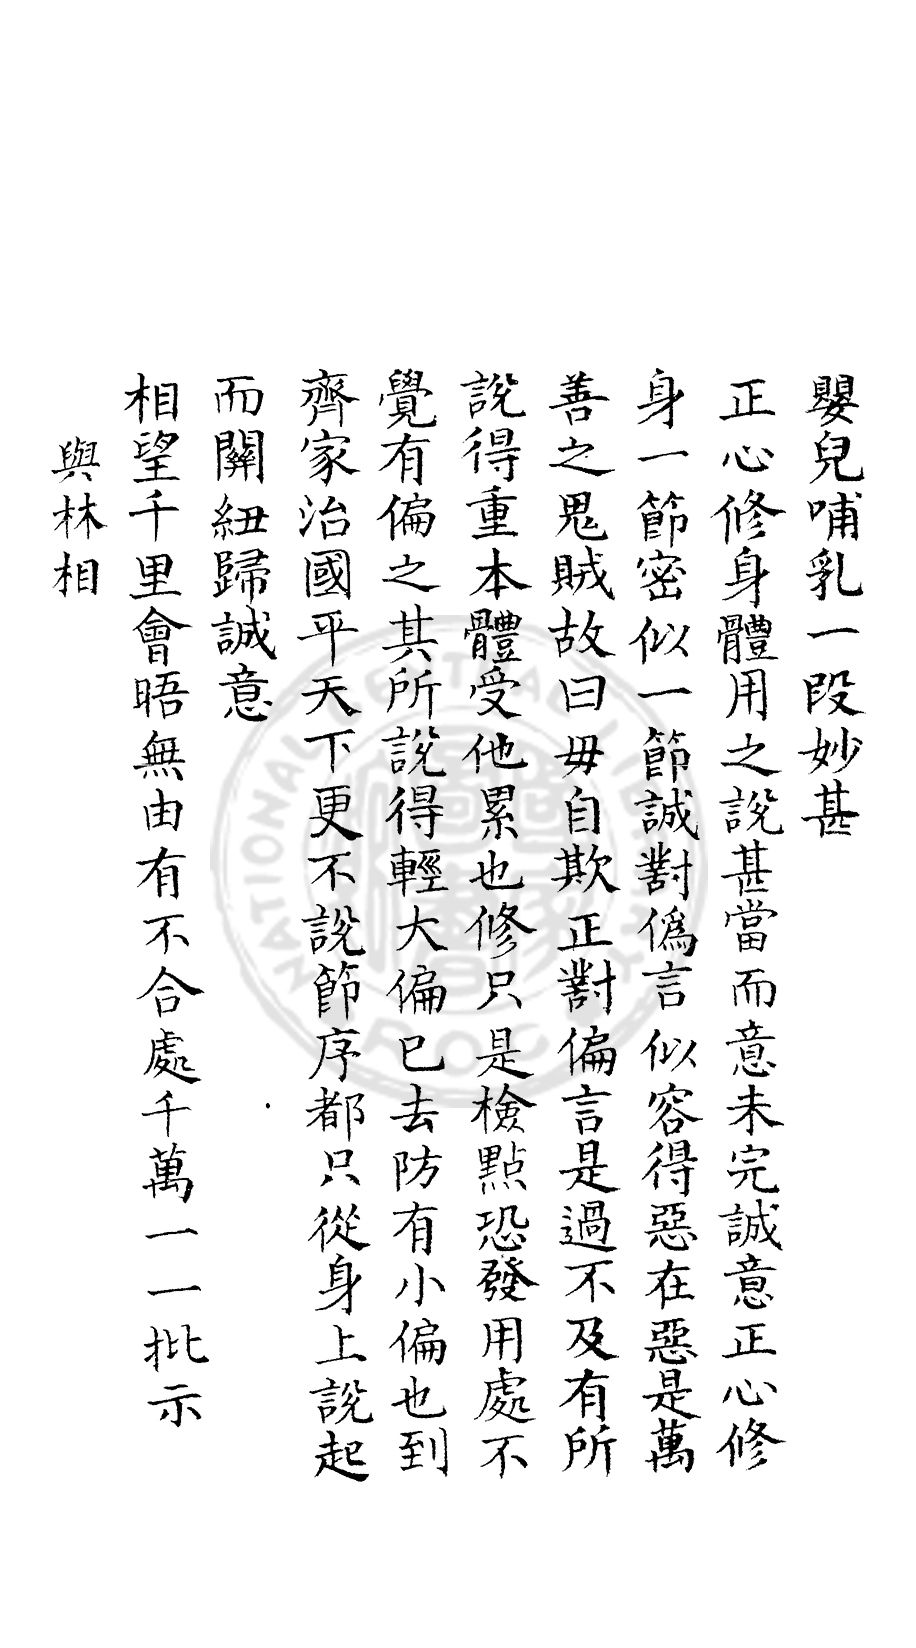 嬰兒哺乳一段妙甚
正心修身體用之說甚當而意未完誠意正心修
身一節密似一節誠對偽言似容得惡在惡是萬
善之鬼賊故曰毋自欺正對偏言是過不及有所
說得重本體受他累也修只是檢點恐發用處不
覺有偏之其所說得輕大偏已去防有小偏也到
齊家治國平天下更不說節序都只從身上說起
而關紐歸誠意
相望千里會晤無由有不合處千萬一一批示
與林相
NATIONAL CENTRAL LIBRARY
R.O.C.